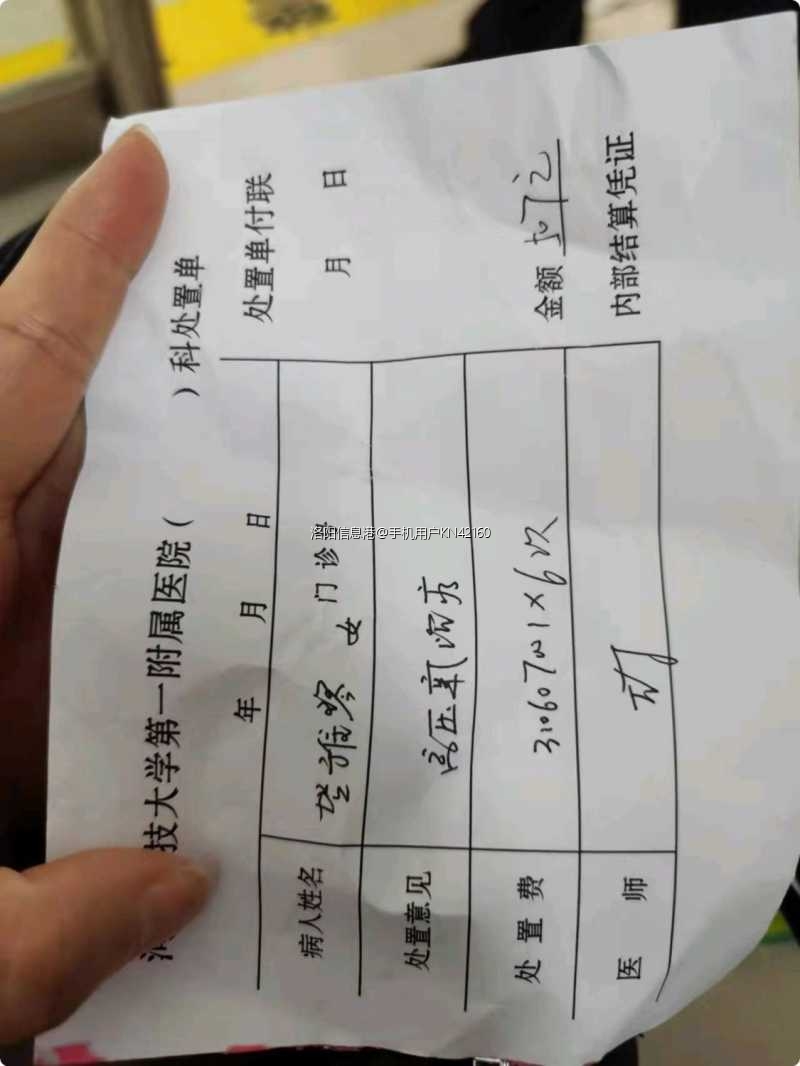 技大学第一附属医院（ ）科处置单
年 月 日
处置单付联
月 日
病人姓名 楚雅琴 女 门诊
处置意见 高压氧治疗
处置费 310607001×6次
医师
金额
内部结算凭证
洛阳信息港@手机用户KN42160